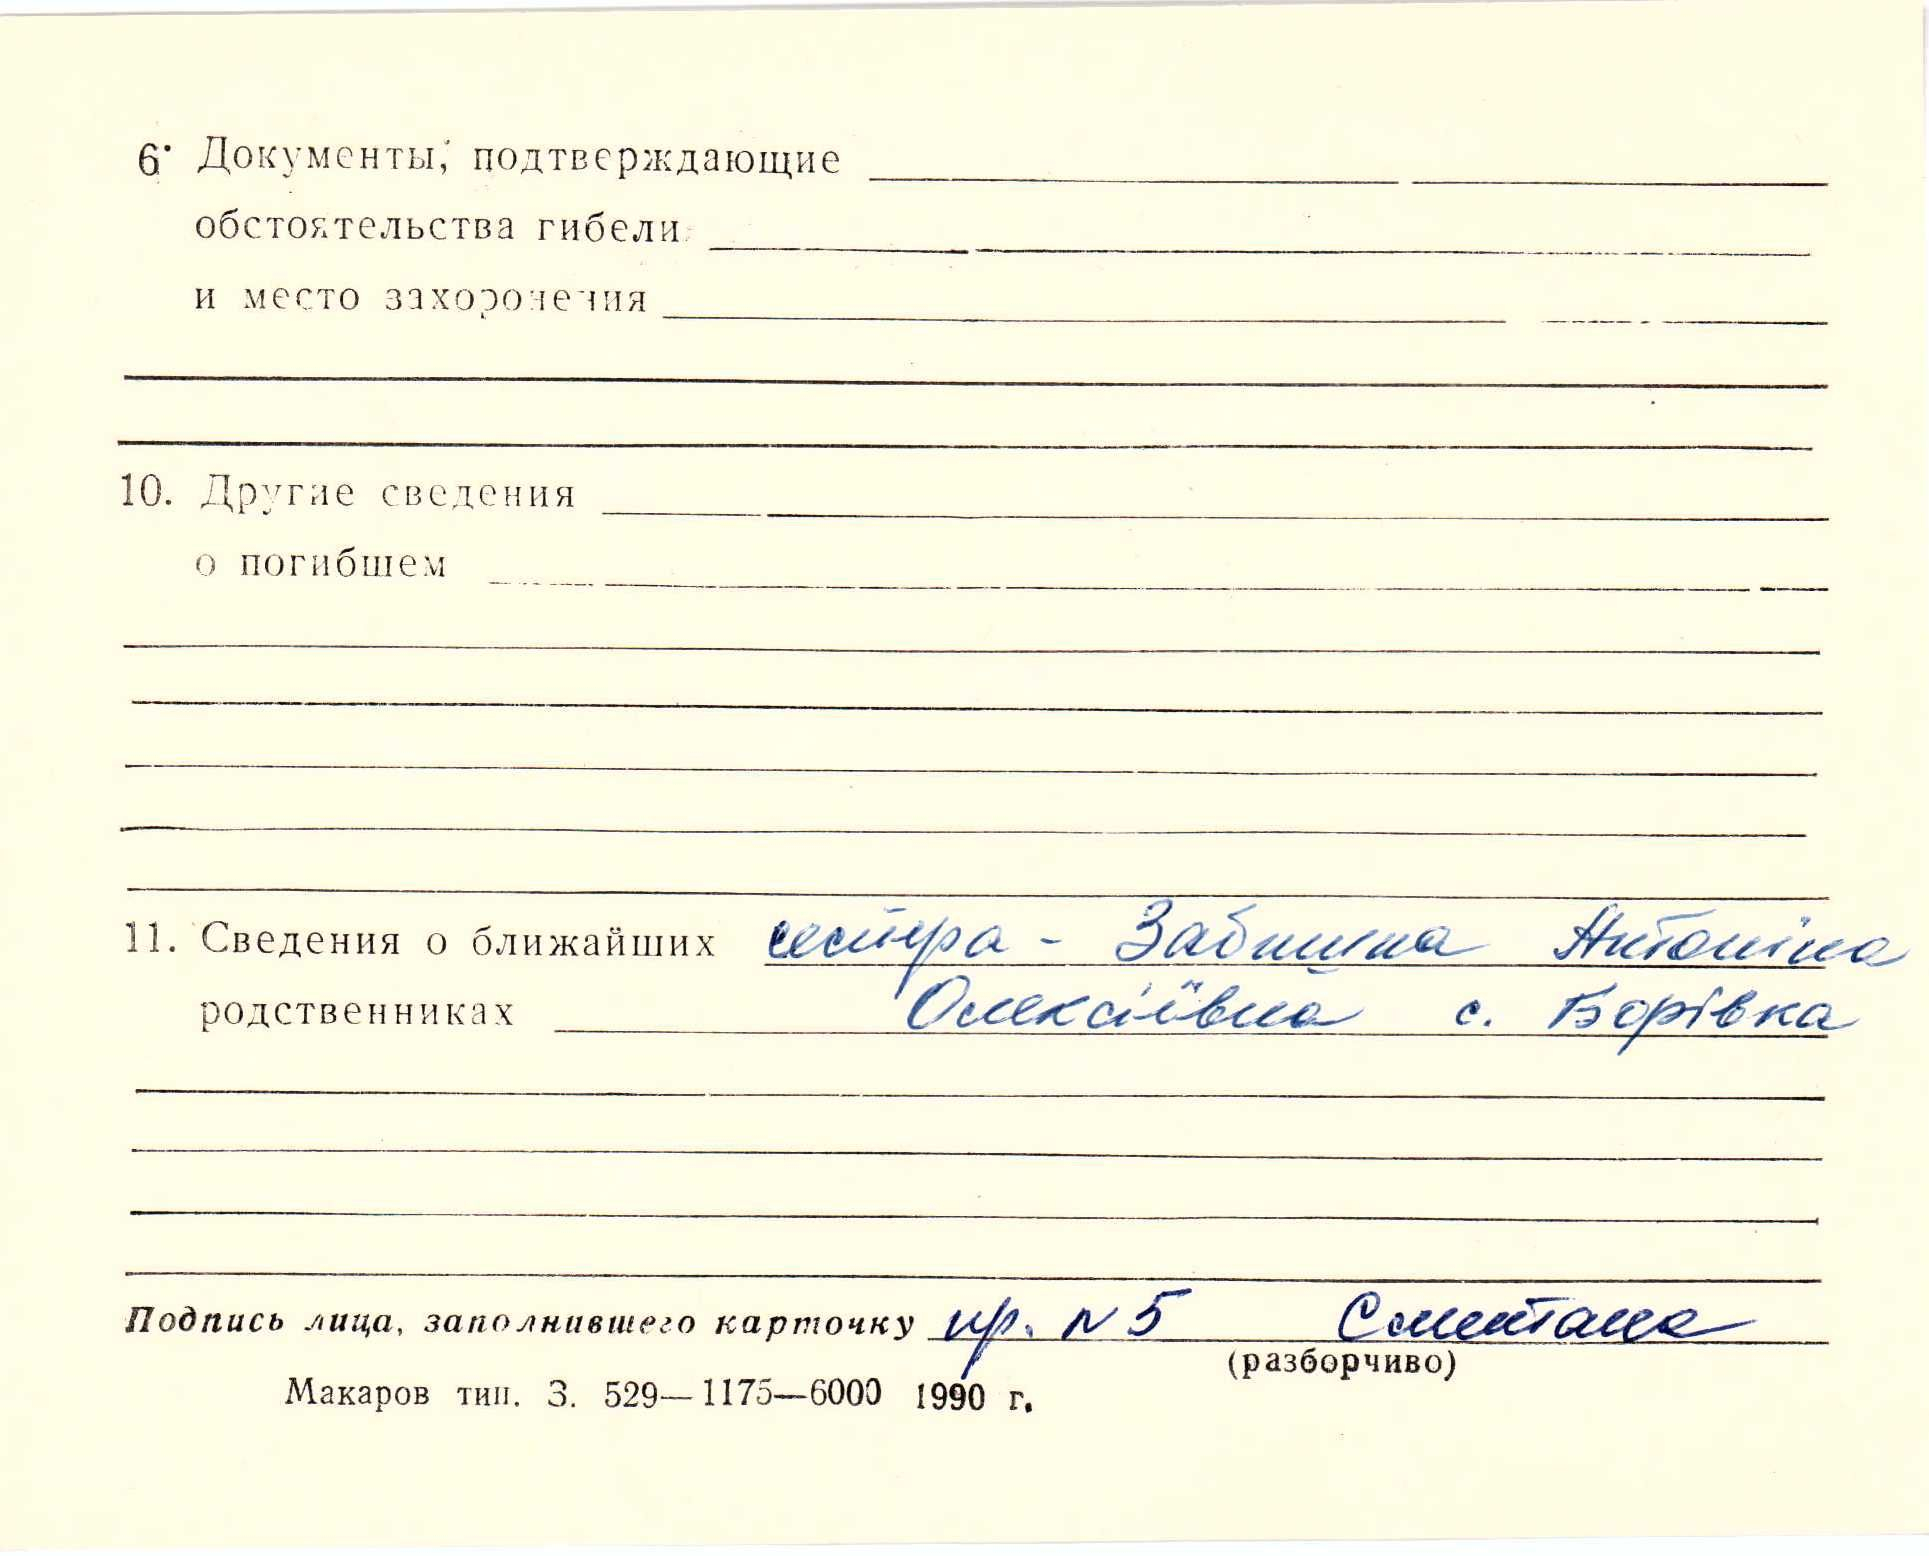 6. Документы, подтверждающие
обстоятельства гибели
и место захоронения
10. Другие сведения
о погибшем
11. Сведения о ближайших сестра - Антоніна
родственниках Олексіївна с. Борівка
Подпись лица, заполнившего карточку пр. N 5 Сметана
(разборчиво)
Макаров тип. З. 529—1175—6000 1990 г.